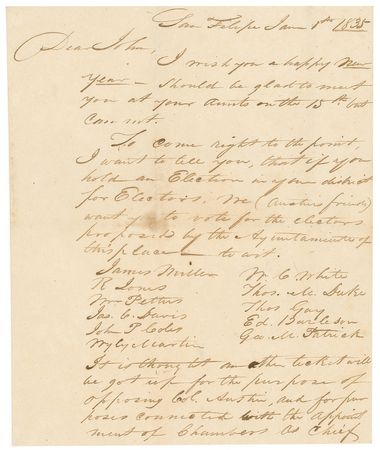 San Felipe Jany 1st 1835
Dear John,
I wish you a happy New
Year — Should be glad to meet
you at your Aunts on the 15th but
can not.
To come right to the point,
I want to tell you, that if you
hold an Election in your district
for Electors, we (Austins friends)
want you to vote for the electors
proposed by the Ayuntamiento of
this place — to wit.
James Miller W. C. White
R Jones Thos. M. Duke
Wm Pettus Thos Gay
Jas. C. Davis Ed. Burleson
John P. Coles Geo M. Patrick
Wyly Martin
It is thought an other ticket will
be got up for the purpose of
opposing Col. Austin, and for pur
poses connected with the appoint
ment of Chambers as Chief